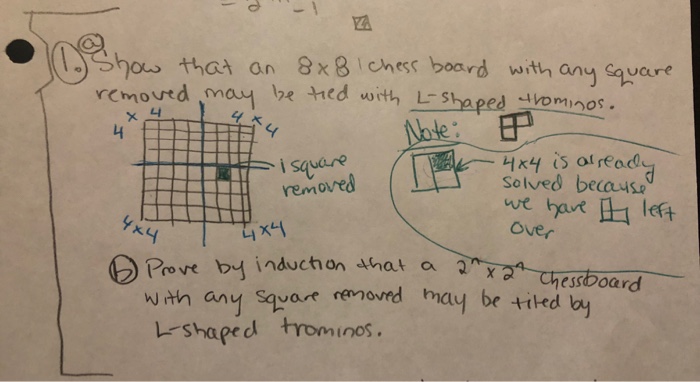 = 2 - 1
1. a Show that an 8x8 chess board with any square
removed may be tied with L-shaped trominos.
4 x 4 4 x 4
Note:
1 square
removed
4x4 is already
solved because
we have left
over
4x4 4x4
b Prove by induction that a 2^n x 2^n chessboard
with any square removed may be tiled by
L-shaped trominos.